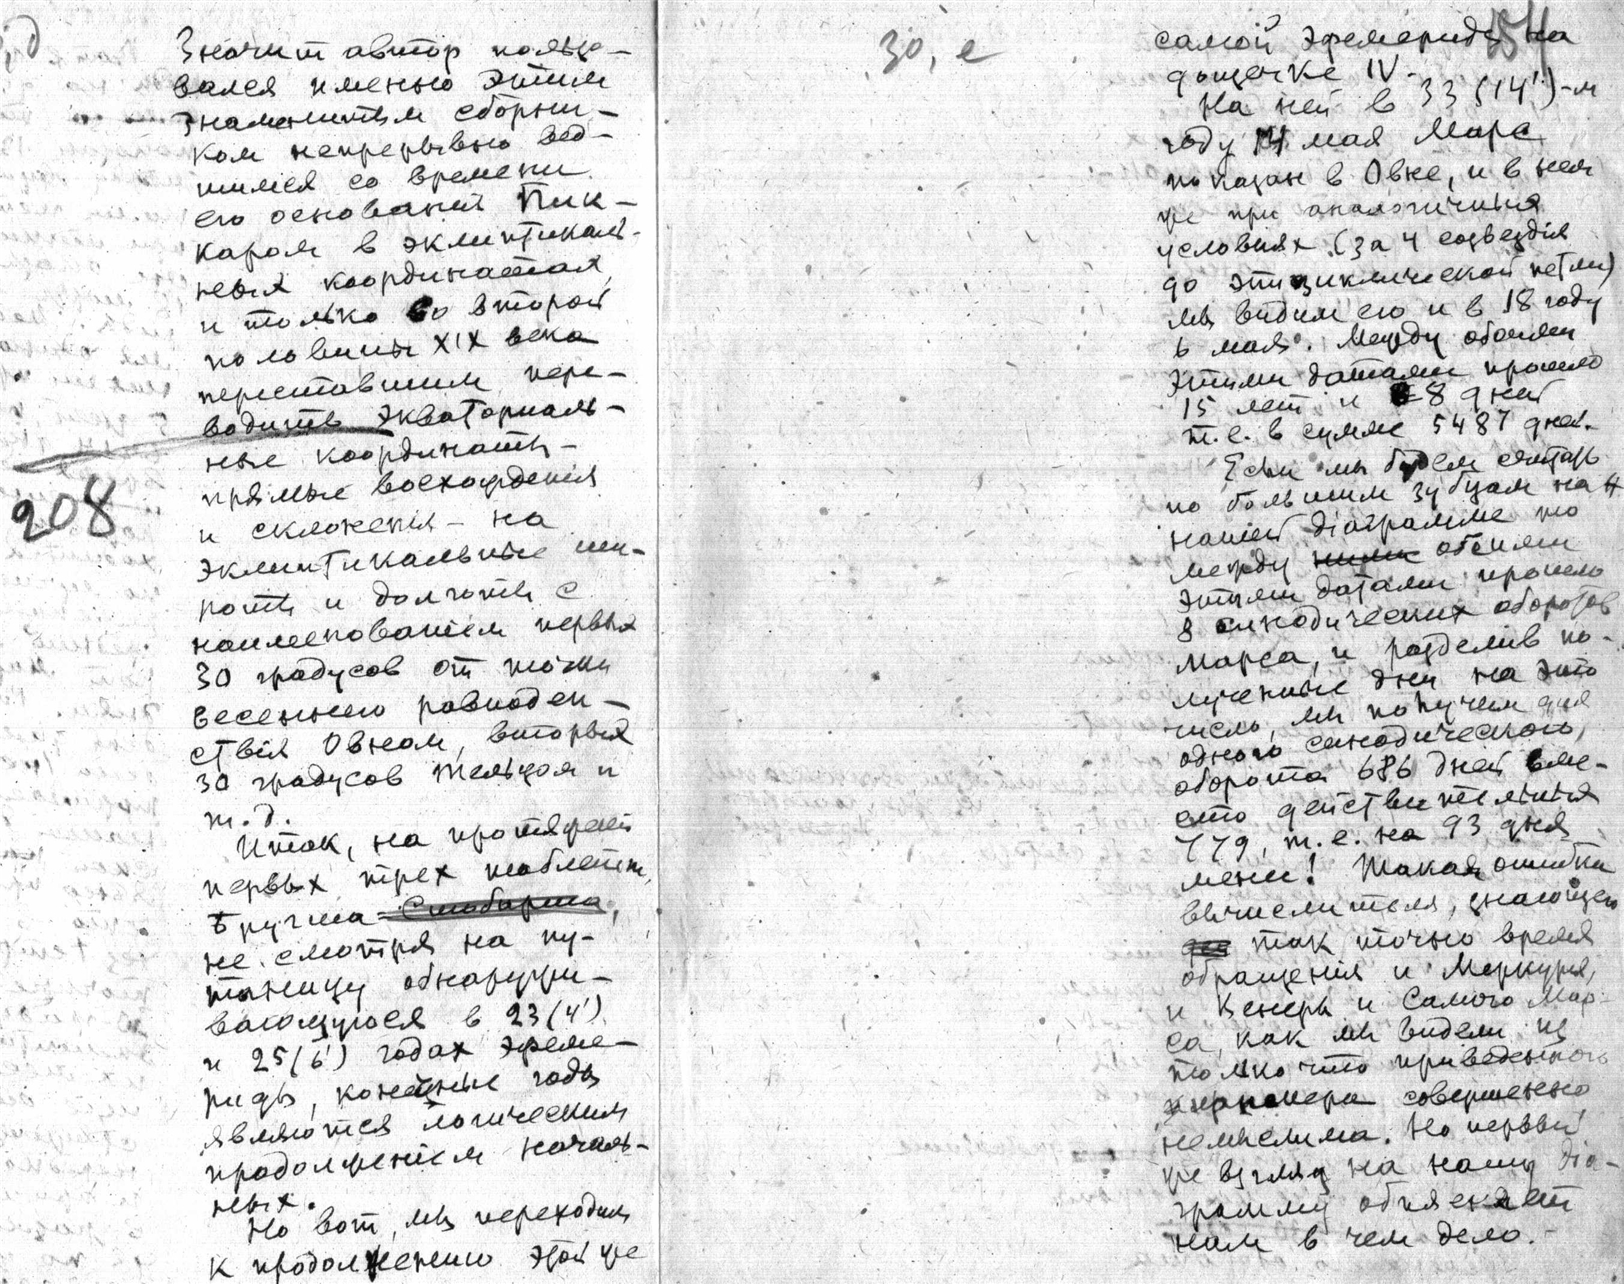 Значит автор пользо-
вался именно этим
знаменитым сборни-
ком непрерывно вед-
шимся со времени
его основаній Пик-
каром в эклиптикаль-
ных координатах,
и только во второй
половины XIX века
переставшим пере-
водить экваторіаль-
ные координаты -
прямые восхожденія
и склоненія - на
эклиптикальные ши-
роты и долготы с
наименованіем первых
30 градусов от точки
весеннего равноден-
ствія Овном, вторых
30 градусов Тельцом и
т.д.
Итак, на протяжении
первых трех таблеток
Бругша - Стобарта,
не смотря на пу-
таницу обнаружи-
вающуюся в 23 (4')
и 25 (6') годах эфеме-
риды, конечные годы
являются логическим
продолженіем началь-
ных.
Но вот, мы переходим
к продолжению этой же
208
30, е
самой эфемериды на
дощечке IV.
На ней в 33 (14')-м
году 14 мая Марс
показан в Овне, и в нем
же при аналогичных
условіях (за 4 созвездія
до эпициклической петли)
мы видим его и в 18 году
6 мая. Между обоими
этими датами прошло
15 лет и 8 дней
т.е. в сумме 5487 дней.
Если мы будем считать
по большим зубцам на
нашей діаграмме то
между ними обоими
этими датами прошло
8 синодических оборотов
Марса, и разделив по-
лученные дни на это
число, мы получим для
одного синодического,
оборота 686 дней вме-
сто действительных
779, т.е. на 93 дня
менее! Такая ошибка
вычислителя, знающего
так точно время
обращенія и Меркурія,
и Венеры и самого Мар-
са, как мы видели из
только что приведенного
примера совершенно
немыслима. Но первый
же взгляд на нашу діа-
грамму объясняет
нам в чем дело. -